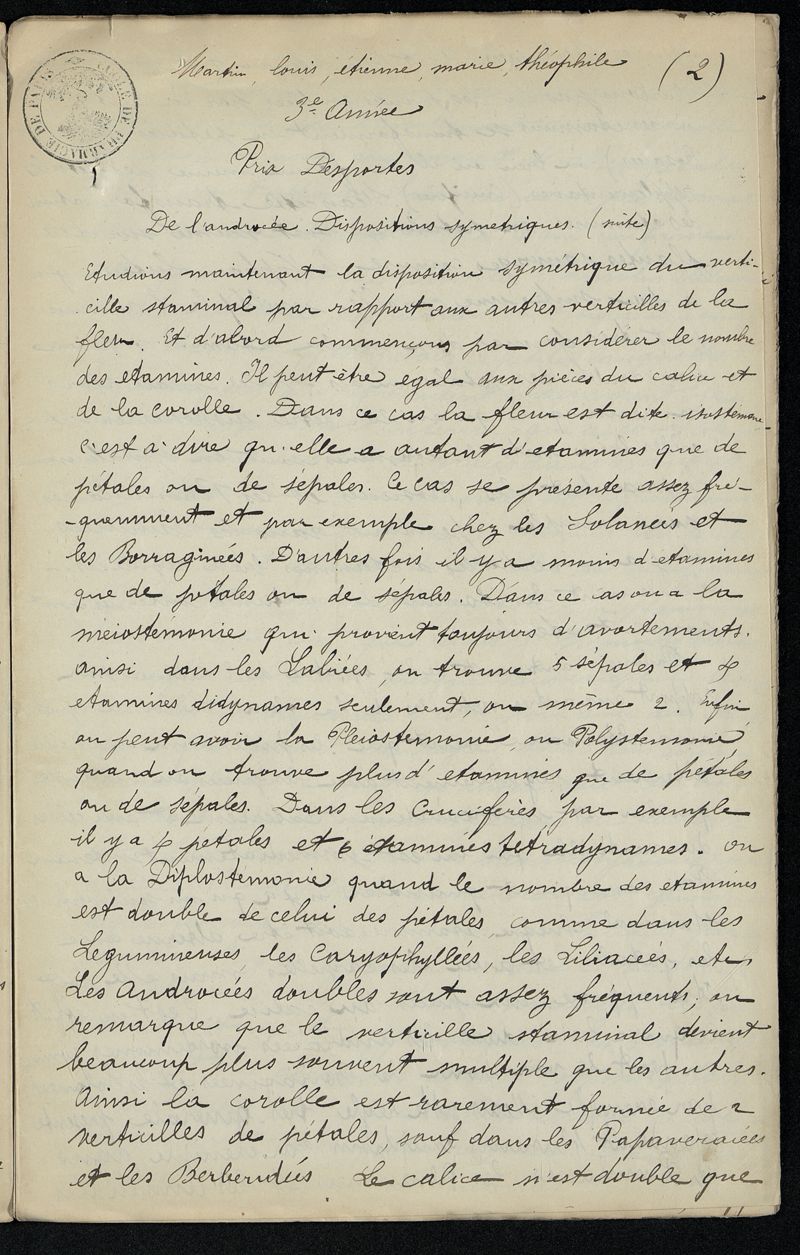 Martin, louis, étienne, marie, théophile (2)
ECOLE DE PHARMACIE DE PARIS
3e Année
Prix Desportes
De l'androcée. Dispositions symetriques. (suite)
Etudions maintenant la disposition symétrique du verti-
cille staminal par rapport aux autres verticilles de la
fleur. Et d'abord commençons par considérer le nombre
des etamines. Il peut être egal aux pièces du calice et
de la corolle. Dans ce cas la fleur est dite isostémone
c'est à dire qu'elle a autant d'etamines que de
pétales ou de sépales. Ce cas se présente assez fré-
-quemment et par exemple chez les Solanées et
les Borraginées. D'autres fois il y a moins d'etamines
que de pétales ou de sépales. Dans ce cas on a la
meiostémonie qui provient toujours d'avortements.
ainsi dans les Labiées, on trouve 5 sépales et 4
etamines didynames seulement, ou même 2. Enfin
on peut avoir la Pleiostemonie, ou Polystemonie
quand on trouve plus d'etamines que de pétales
ou de sépales. Dans les Crucifères, par exemple
il y a 4 pétales et 6 étamines tetradynames. on
a la Diplostemonie quand le nombre des etamines
est double de celui des pétales, comme dans les
Legumineuses, les Caryophyllées, les Liliacées, etc
Les Androcées doubles sont assez fréquents, on
remarque que le verticille staminal devient
beaucoup plus souvent multiple que les autres.
Ainsi la corolle est rarement formée de 2
verticilles de pétales, sauf dans les Papaveracées
et les Berberidées Le calice n'est double que